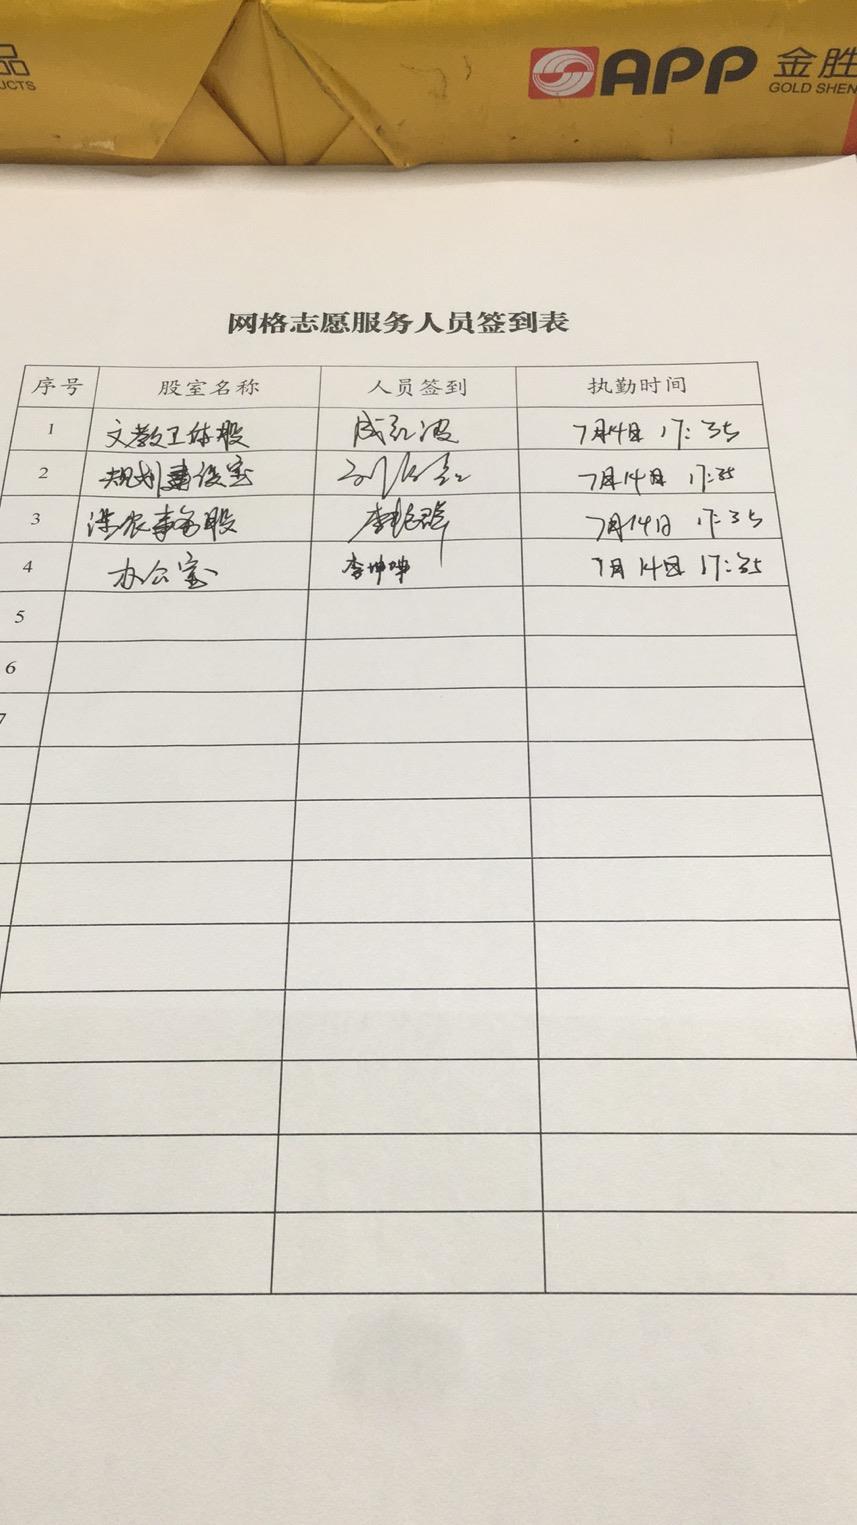 品
UCTS
APP 金胜
GOLD SHEN
网格志愿服务人员签到表
序号 股室名称 人员签到 执勤时间
1 文教卫体股 成红波 7月14日 17:35
2 规划建设室 7月14日 17:35
3 涉农事务股 李艳群 7月14日 17:35
4 办公室 李坤坤 7月14日 17:35
5
6
7